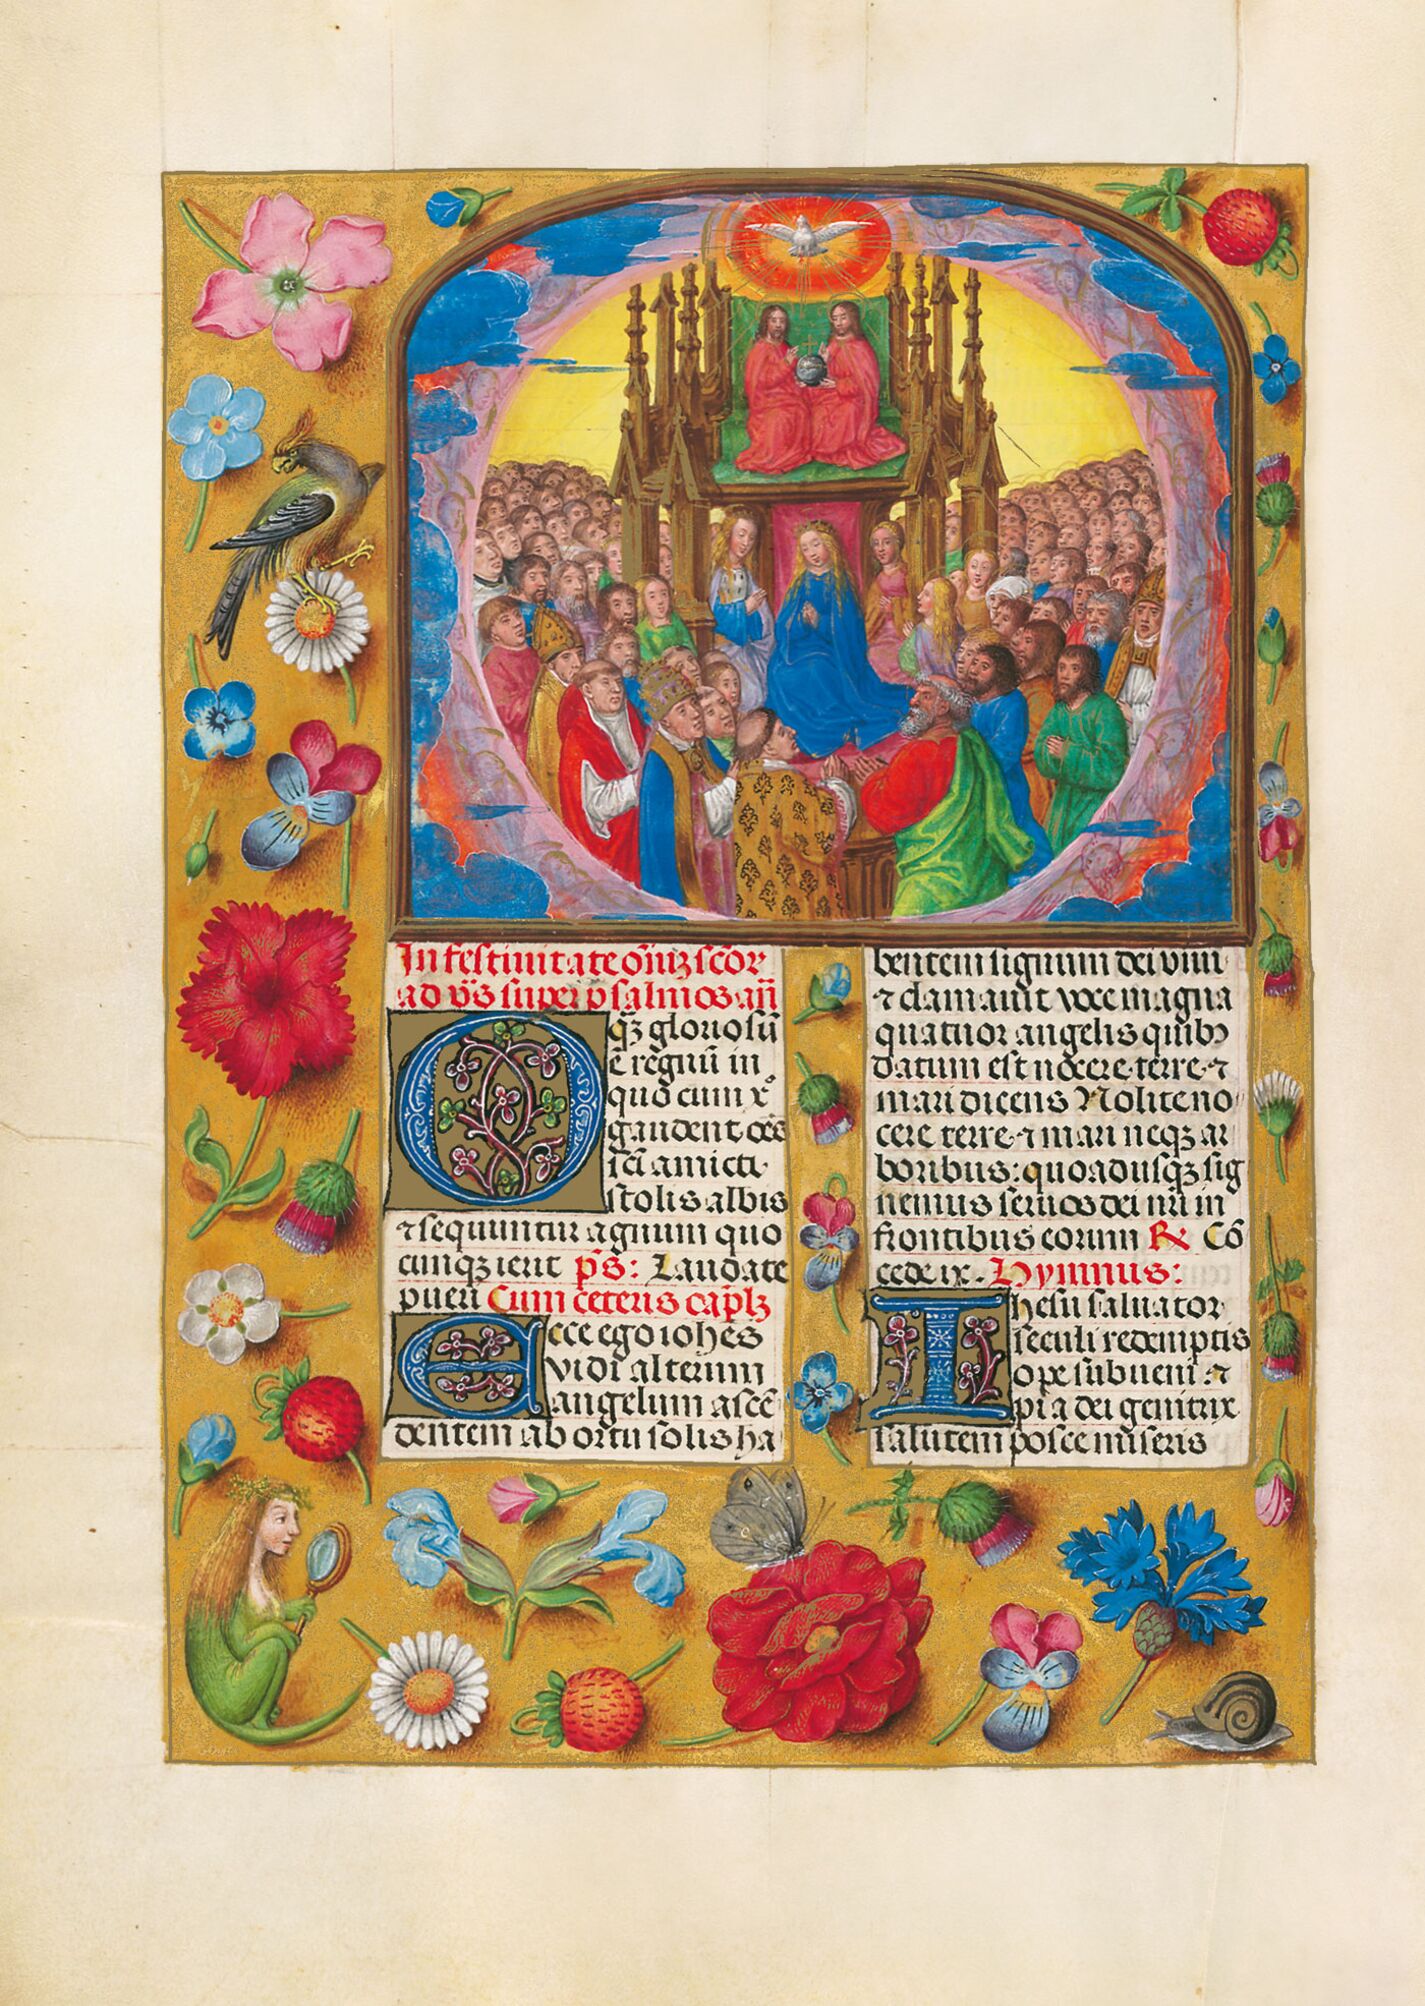 In festiuitate oĩuꝫ scõr
ad vẽs super psalmos añ
O qꝫ gloriosũ
ẽ regnũ in
quo cum xᵒ
gaudent oẽs
scĩ amicti
stolis albis
⁊ sequuntur agnum quo
cunqꝫ ierit p̃s: Laudate
pueri Cum ceteris capl̃ꝫ
Ecce ego ioh̃es
vidi alterum
angelum ascẽ
dentem ab ortu solis ha
bentem signum dei viui
⁊ clamauit voce magna
quatuor angelis quibꝰ
datum est nocere terre ⁊
mari dicens Nolite no
cere terre ⁊ mari neqꝫ ar
boribus: quoadusqꝫ sig
nemus seruos dei nr̃i in
frontibus eorum ℟ Cõ
cede ix. Hymnus:
Ihesu saluator
seculi redemptis
ope subueni: ⁊
pia dei genitrix
salutem posce miseris